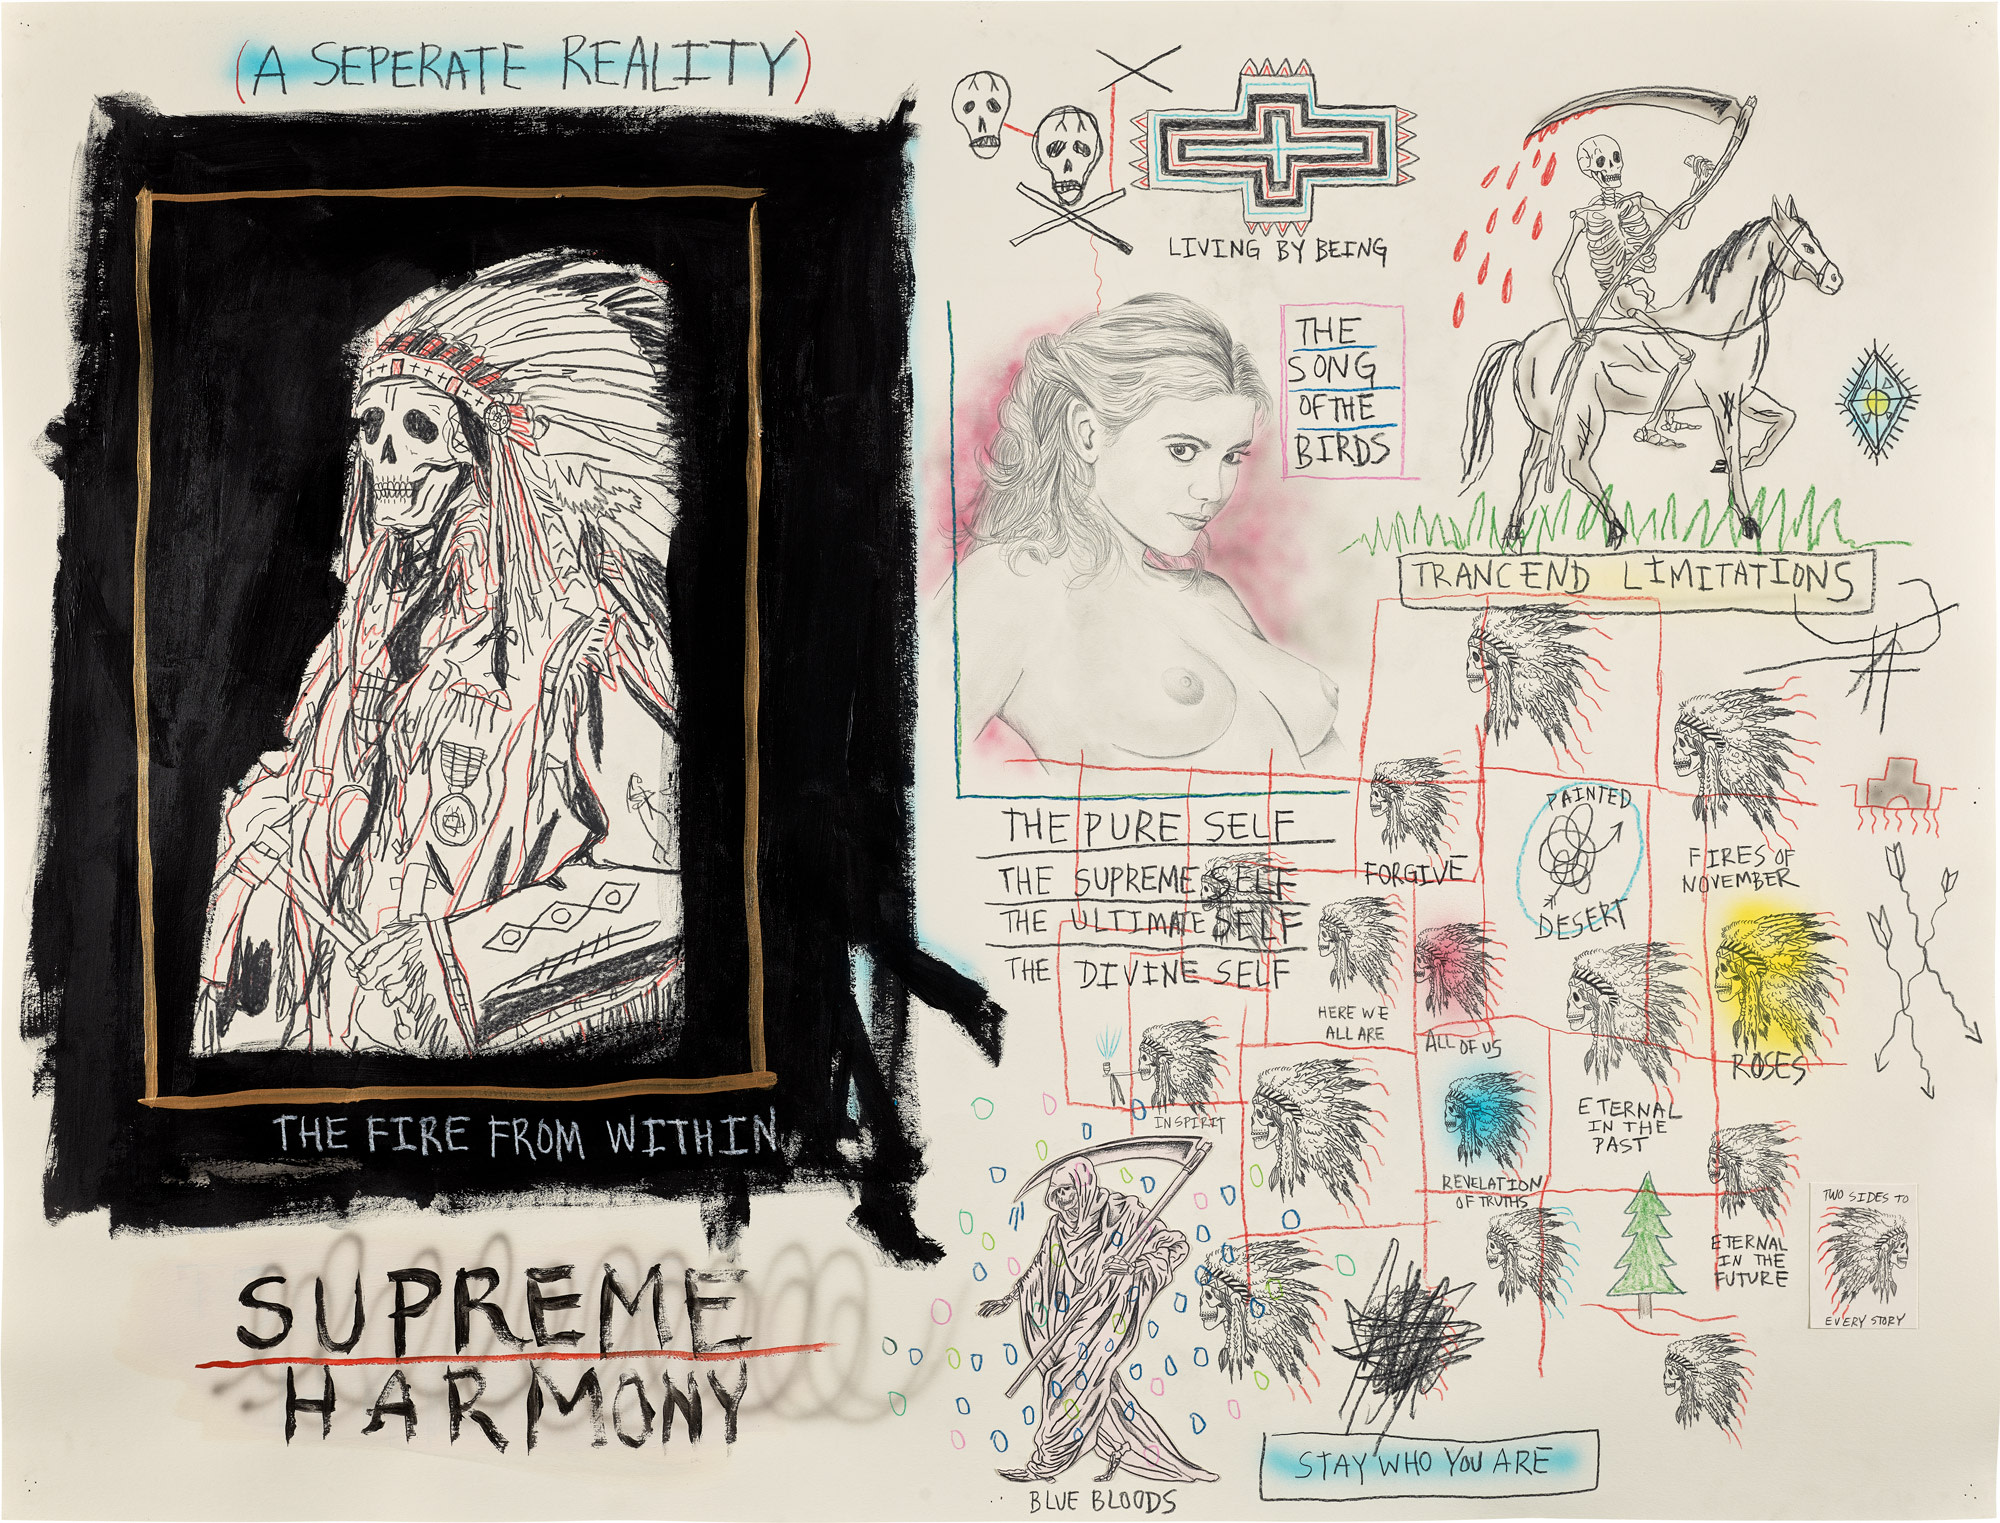 (A SEPERATE REALITY)
THE FIRE FROM WITHIN
SUPREME
HARMONY
LIVING BY BEING
THE
SONG
OF THE
BIRDS
TRANCEND LIMITATIONS
THE PURE SELF
THE SUPREME SELF
THE ULTIMATE SELF
THE DIVINE SELF
FORGIVE
PAINTED
DESERT
FIRES OF
NOVEMBER
HERE WE
ALL ARE
ALL OF US
ROSES
IN SPIRIT
REVELATION
OF TRUTHS
ETERNAL
IN THE
PAST
ETERNAL
IN THE
FUTURE
TWO SIDES TO
EVERY STORY
STAY WHO YOU ARE
BLUE BLOODS